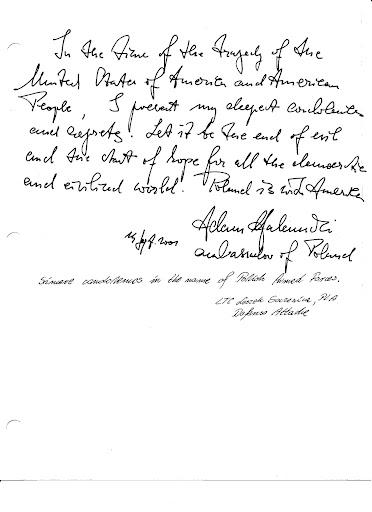 In the time of the tragedy of the
United States of America and American
People, I present my deepest condolences
and regrets. Let it be the end of evil
and the start of hope for all the democratic
and civilized world. Poland is with America
Adam
Sept. 2001
ambassador of Poland
Sincere condolences in the name of Polish Armed Forces.
LTC Leszek
Defense Attaché